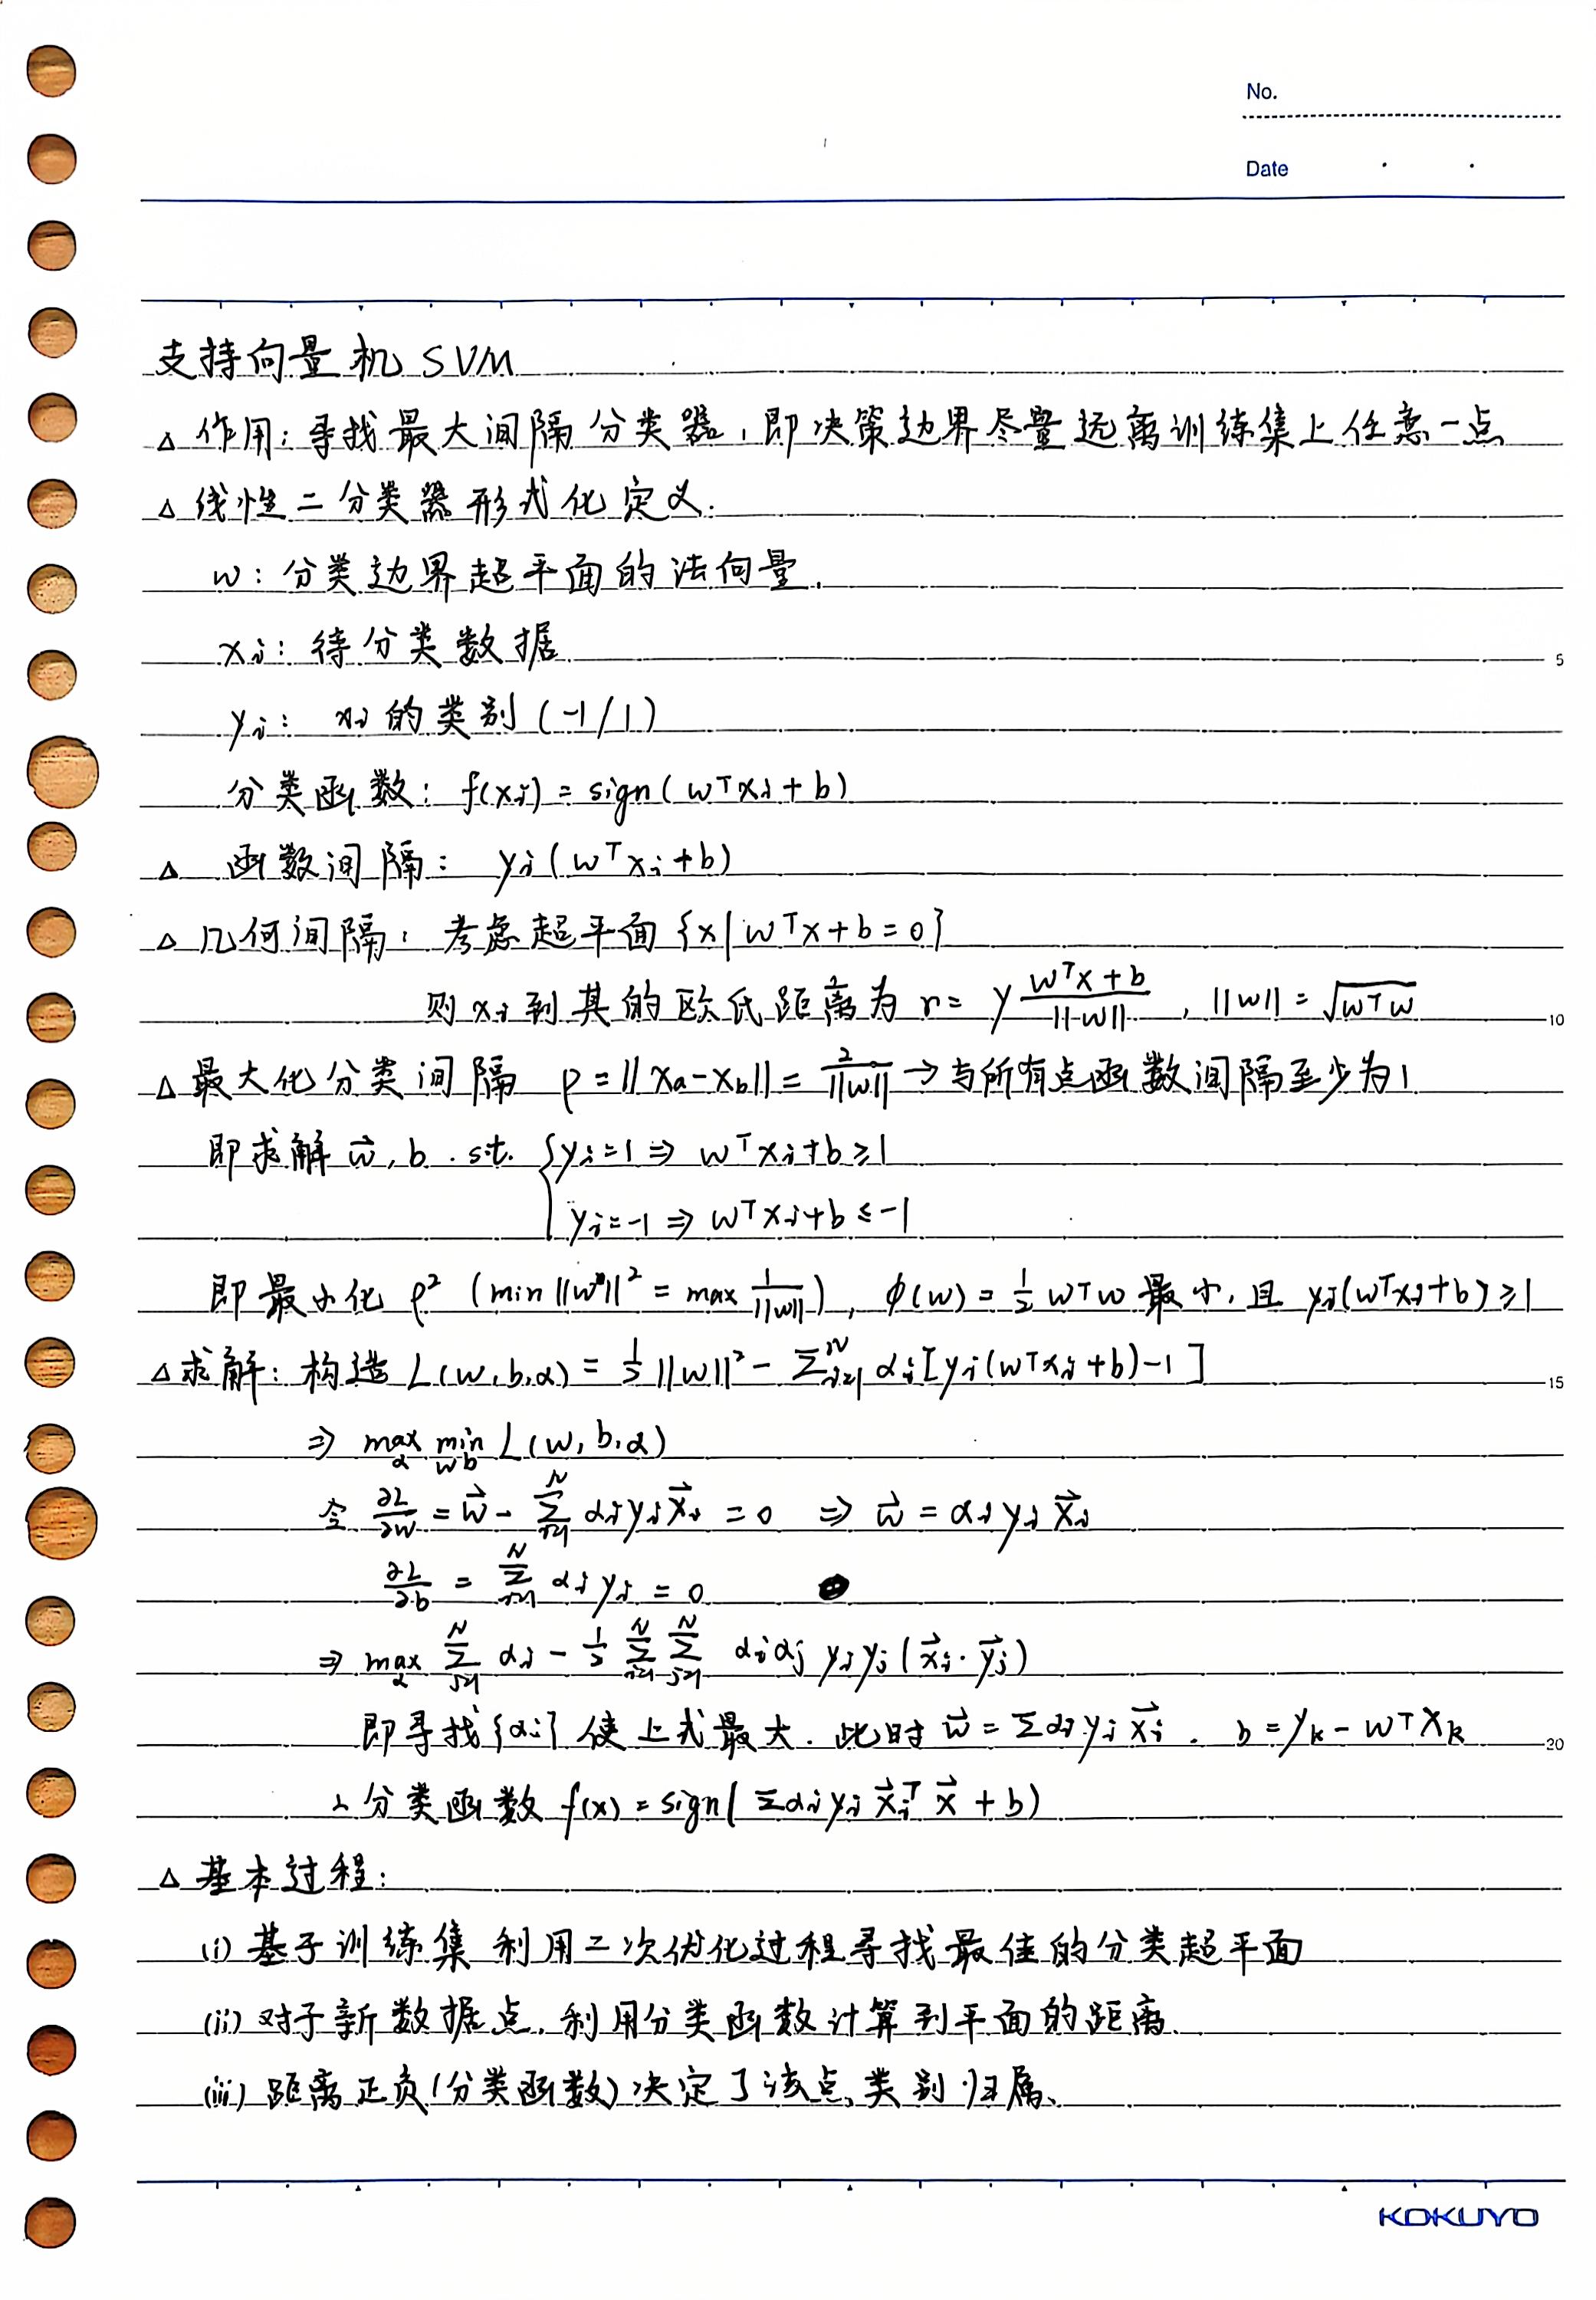 No.
Date
支持向量机 SVM
△ 作用：寻找最大间隔分类器，即决策边界尽量远离训练集上任意一点
△ 线性二分类器形式化定义：
w：分类边界超平面的法向量.
xᵢ：待分类数据
5
yᵢ： xᵢ的类别(-1/1)
分类函数：f(xᵢ) = sign(wᵀxᵢ + b)
△ 函数间隔： yᵢ(wᵀxᵢ+b)
△ 几何间隔：考虑超平面 {x| wᵀx+b=0}
则 xᵢ到其的欧氏距离为 r = y (wᵀx+b)/||w|| , ||w|| = √(wᵀw)
10
△ 最大化分类间隔 ρ = ||xₐ-x_b|| = 2/||w|| → 与所有点函数间隔至少为1.
即求解 w⃗, b . s.t. { yᵢ=1 ⇒ wᵀxᵢ+b ≥ 1
yᵢ=-1 ⇒ wᵀxᵢ+b ≤ -1
即最小化 ρ² (min||w||² = max 1/||w||), φ(w) = ½ wᵀw 最小，且 yᵢ(wᵀxᵢ+b) ≥ 1
△ 求解：构造 L(w,b,α) = ½||w||² - Σᵢ₌₁ᴺ αᵢ[yᵢ(wᵀxᵢ+b)-1]
15
⇒ max_α min_wb L(w,b,α)
令 ∂L/∂w = w⃗ - Σᵢ₌₁ᴺ αᵢyᵢx⃗ᵢ = 0 ⇒ w⃗ = αᵢyᵢx⃗ᵢ
∂L/∂b = Σᵢ₌₁ᴺ αᵢyᵢ = 0
⇒ max_α Σᵢ₌₁ᴺ αᵢ - ½ Σᵢ₌₁ᴺ Σⱼ₌₁ᴺ αᵢαⱼ yᵢyⱼ(x⃗ᵢ·y⃗ⱼ)
即寻找{αᵢ}使上式最大. 此时 w⃗ = Σαᵢyᵢx⃗ᵢ. b = yₖ - wᵀxₖ
20
∴ 分类函数 f(x) = sign(Σαᵢyᵢx⃗ᵢᵀx⃗ + b)
△ 基本过程：
(i) 基于训练集利用二次优化过程寻找最佳的分类超平面
(ii) 对于新数据点，利用分类函数计算到平面的距离.
(iii) 距离正负(分类函数)决定了该点类别归属.
KOKUYO